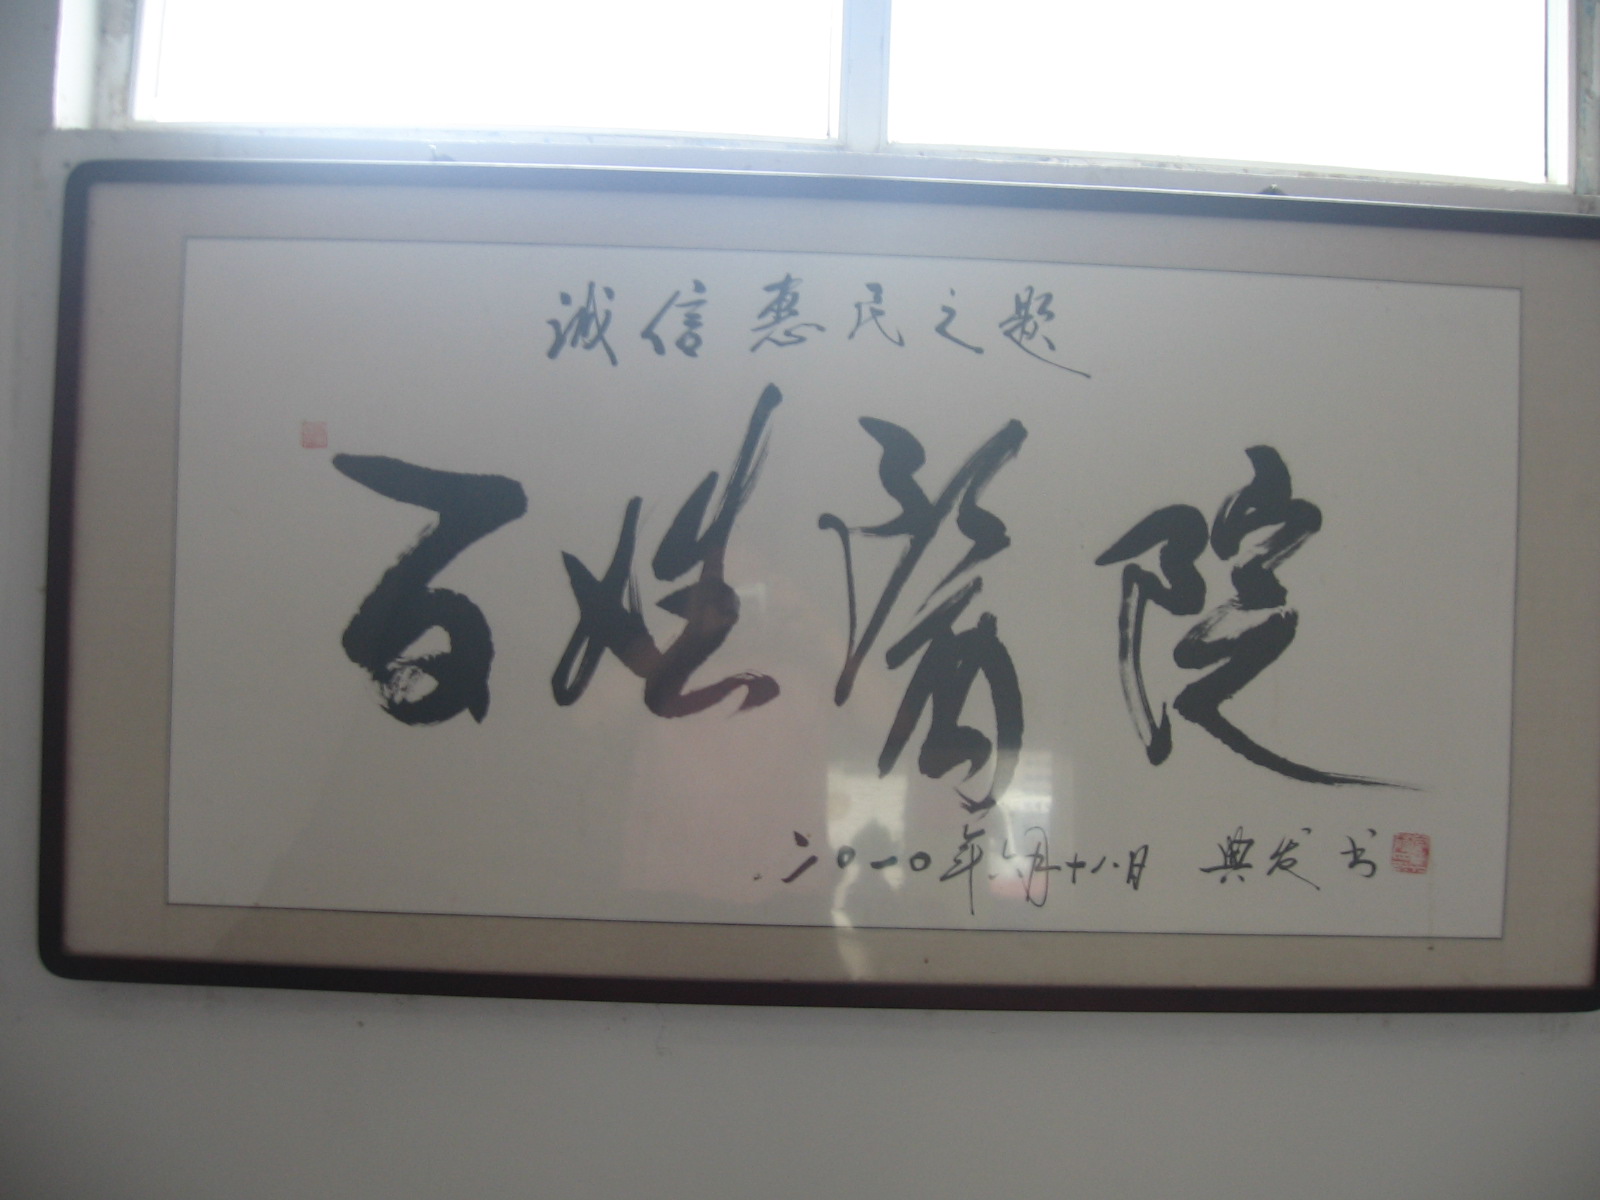 诚信惠民之题
百姓醫院
二〇一〇年六月十八日 典发书